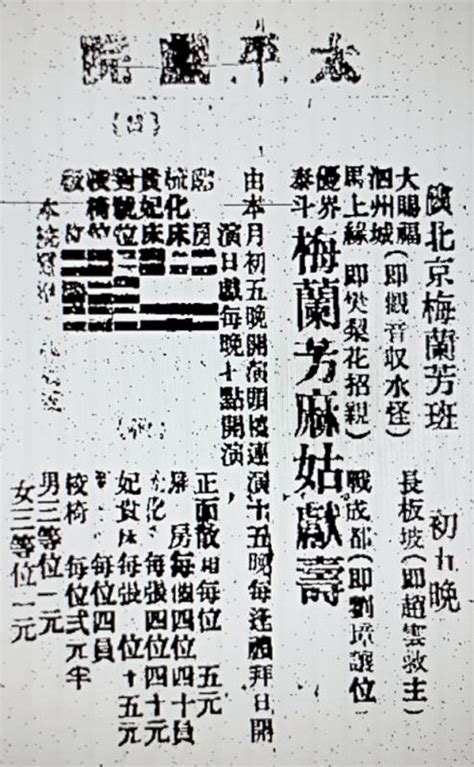 太平戲院
北京梅蘭芳班 初九晚
大賜福 長板坡(即趙雲救主)
泗州城(即觀音收水怪)
馬上緣(即樊梨花招親) 戰成都(即劉璋讓位)
優界泰斗 梅蘭芳麻姑獻壽
由本月初五晚開演頭檯連演十五晚每逢禮拜日開
演日戲每晚十點開演
房
梳化床
貴妃床
對號位
椅位
位
正面散廂每位 五元
房每個四位四十員
化 每張四位四十元
妃貴床每張 位十五元
每位四員
棱椅 每位弍元半
男三等位一元
女三等位一元